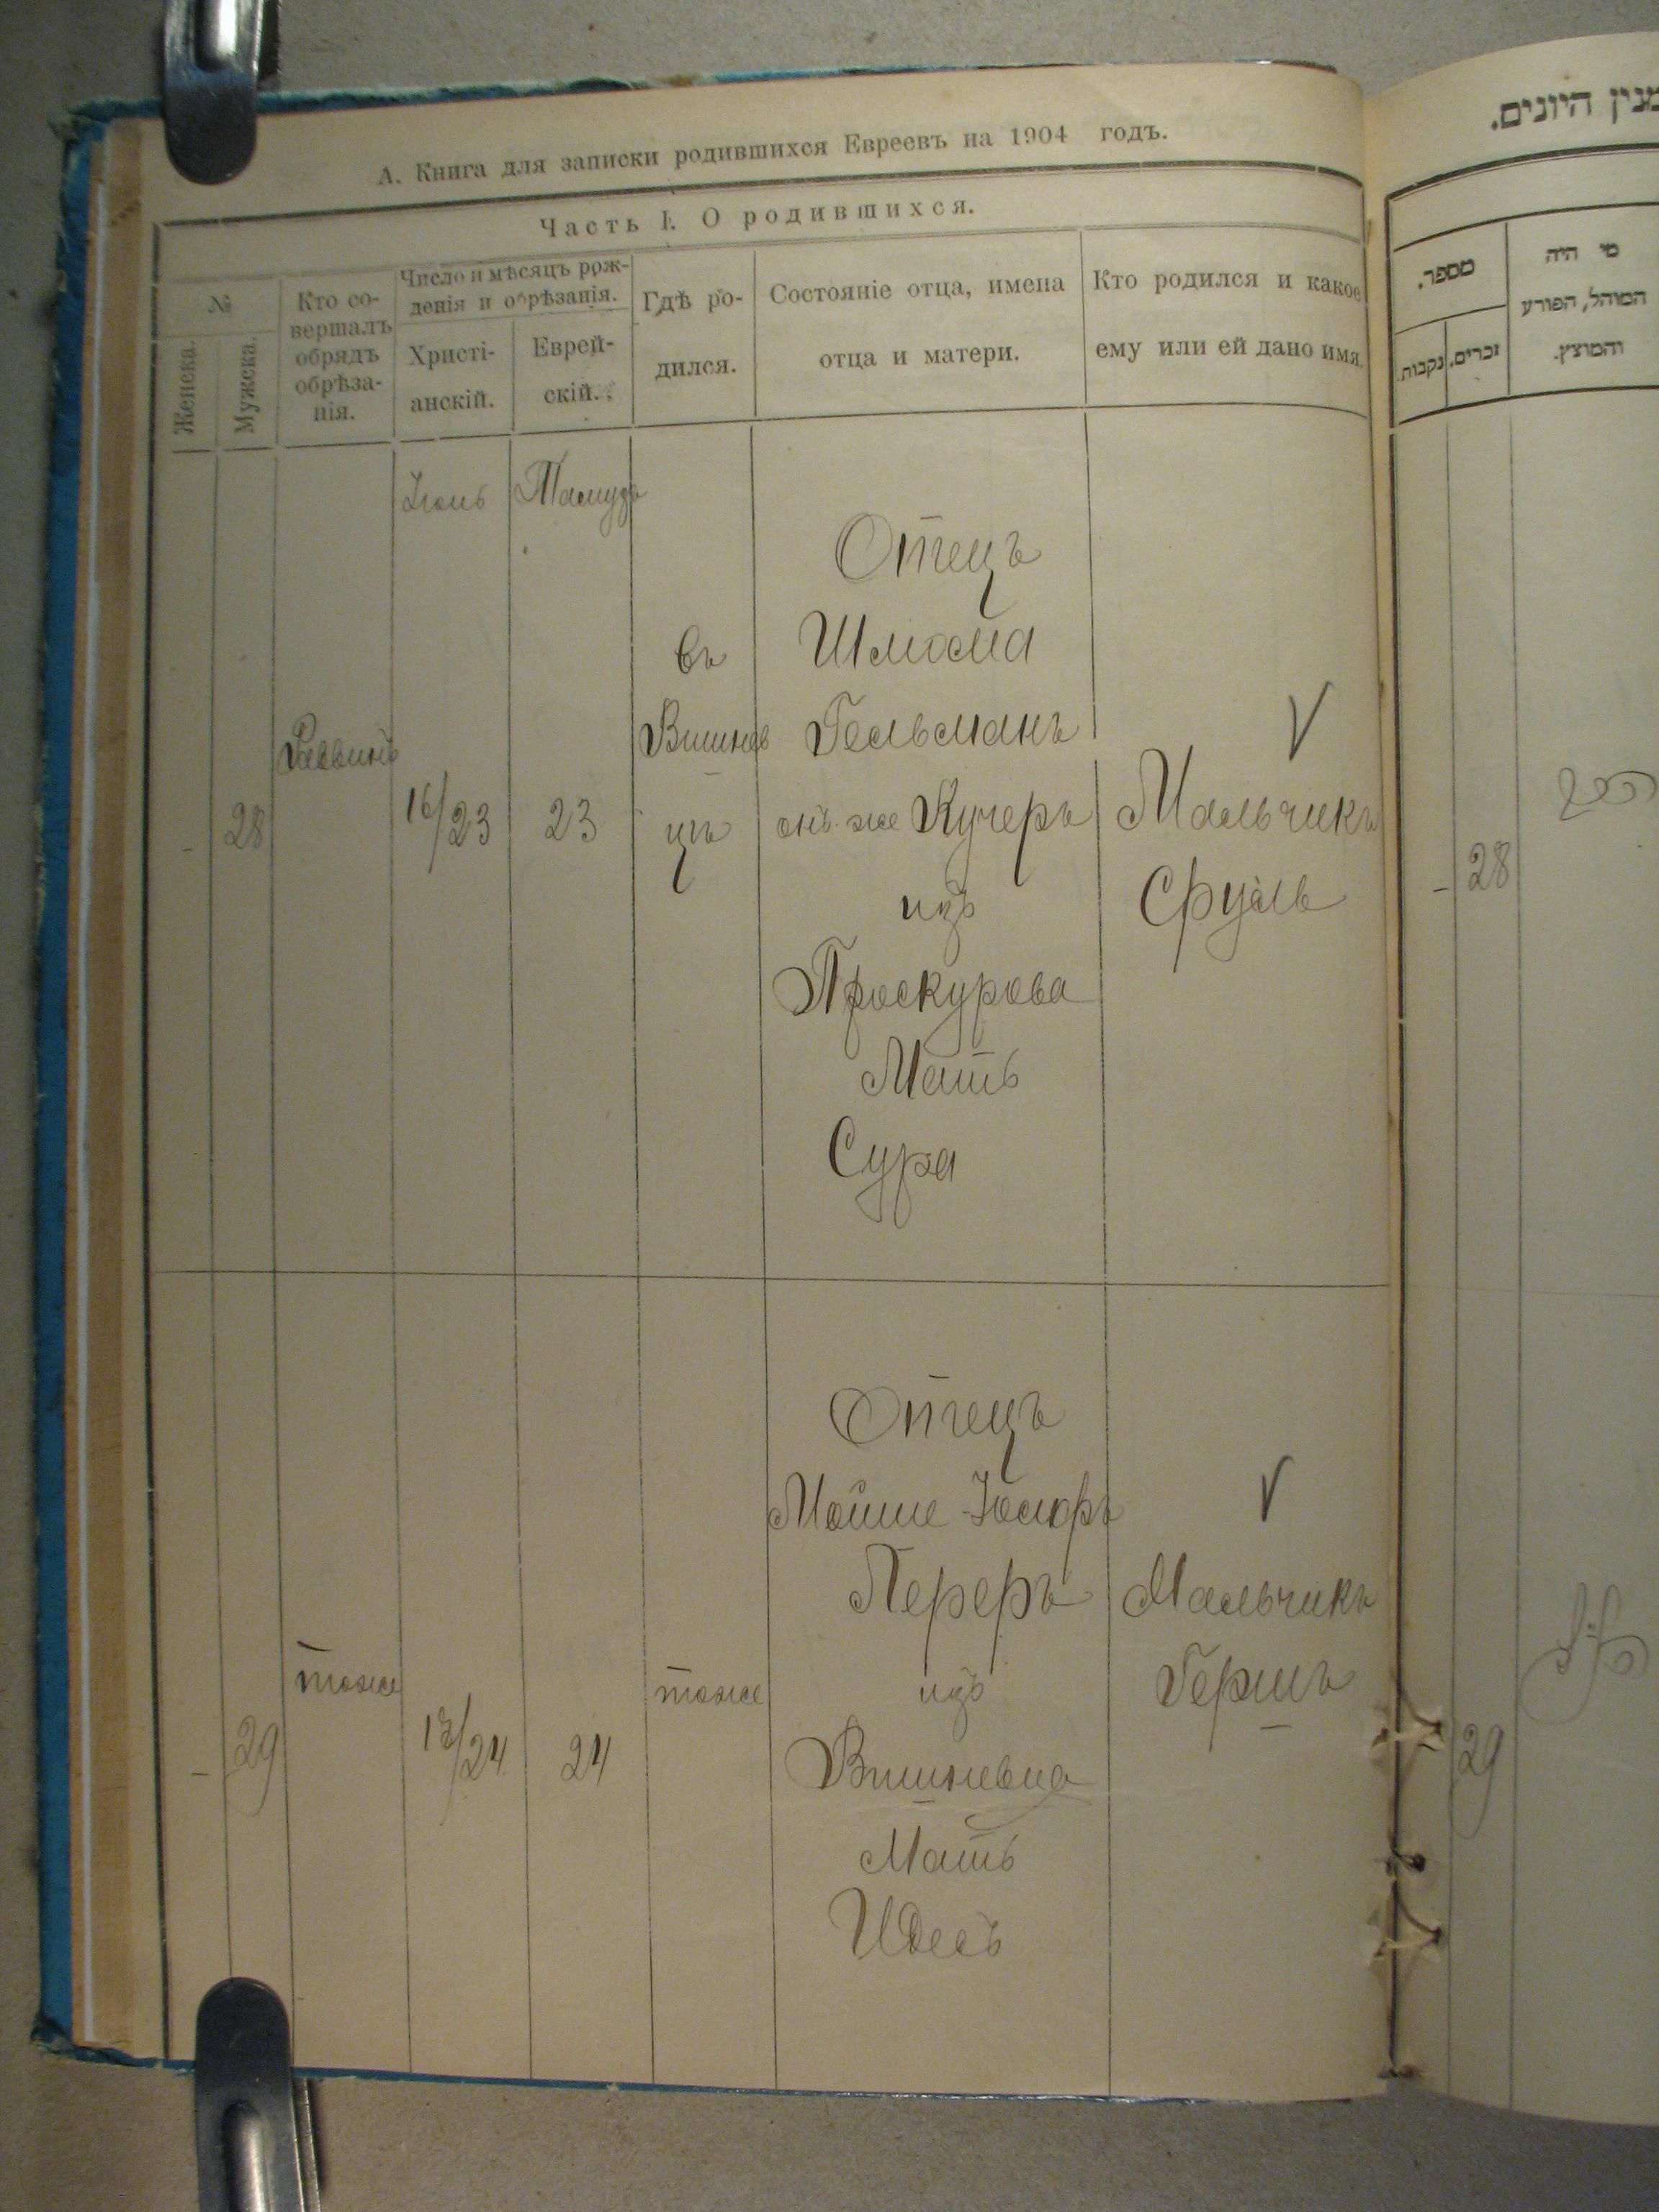 А. Книга для записки родившихся Евреевъ на 1904 годъ.
Часть I. О родившихся.
№
Женска.
Мужска.
Кто со-
вершалъ
обрядъ
обрѣза-
нія.
Число и мѣсяцъ рож-
денія и обрѣзанія.
Христі-
анскій.
Еврей-
скій.
Гдѣ ро-
дился.
Состояніе отца, имена
отца и матери.
Кто родился и какое
ему или ей дано имя.
Тамузъ
- 28
Раввинъ
16/23
23
въ
Вишнев
цѣ
Отецъ
Шлома
Гельманъ
онъ-же Кучеръ
изъ
Проскурова
Мать
Сура
V
Мальчикъ
Сруль
- 29
тоже
18/24
24
тоже
Отецъ
Мойше-Іосифъ
Переръ
изъ
Вишневца
Мать
Идесъ
V
Мальчикъ
Гершъ
מנין היונים.
מספר.
נקבות.
זכרים.
מי היה
המוהל, הפורע
והמוצץ.
- 28
29